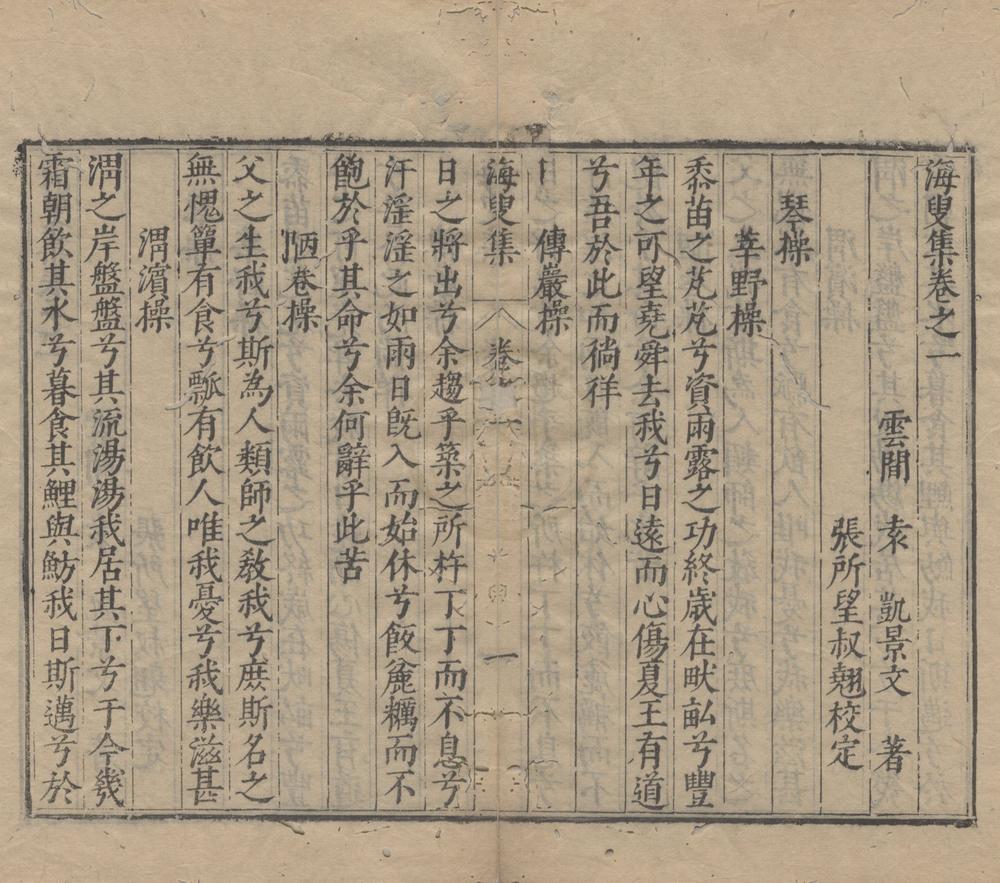 海叟集卷之一
雲間 袁 凱景文 著
張所望叔翹校定
琴操
莘野操
黍苗之芃芃兮資雨露之功終歲在畎畝兮豐
年之可望堯舜去我兮日遠而心傷夏王有道
兮吾於此而徜徉
傅巖操
海叟集 卷 一
日之將出兮余趨乎築之所杵丁丁而不息兮
汗淫淫之如雨日既入而始休兮飯麄糲而不
飽於乎其命兮余何辭乎此苦
陋巷操
父之生我兮斯為人類師之教我兮庶斯名之
無愧簞有食兮瓢有飲人唯我憂兮我樂滋甚
渭濱操
渭之岸盤盤兮其流湯湯我居其下兮于今幾
霜朝飲其水兮暮食其鯉與魴我日斯邁兮於